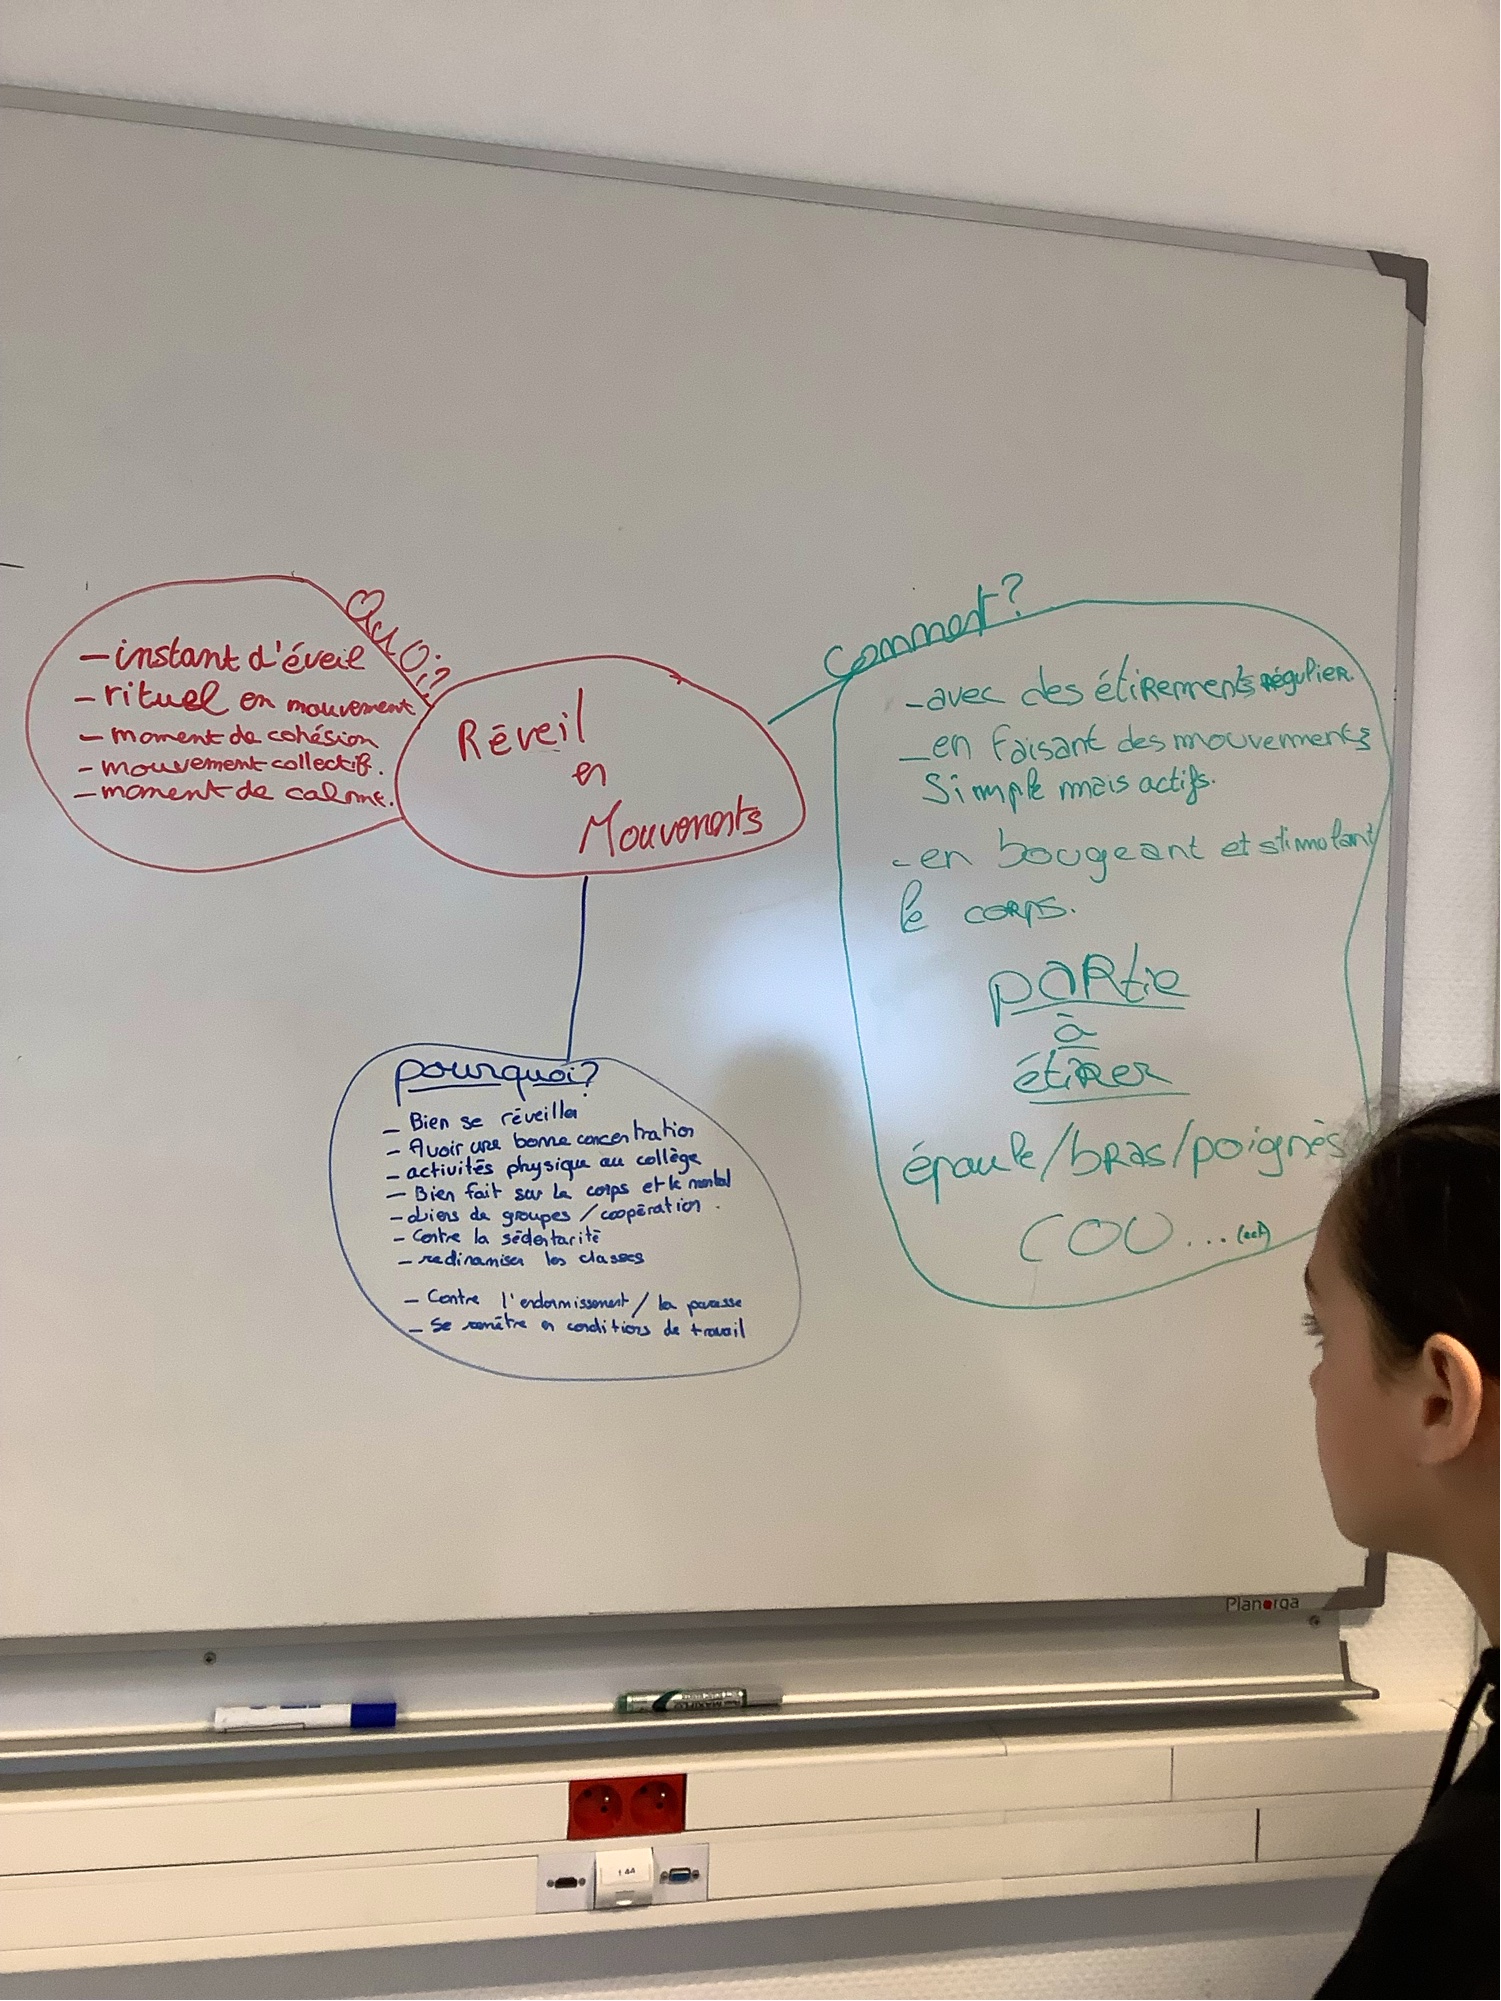 Quoi?
- instant d'éveil
- rituel en mouvement
- moment de cohésion
- mouvement collectif.
- moment de calme.
Réveil
en
Mouvements
Comment?
- avec des étirements régulier.
- en faisant des mouvements
simple mais actifs.
- en bougeant et stimulant
le corps.
partie
à
étirer
épaule/bras/poignès
COU... (ect)
pourquoi?
- Bien se réveiller
- Avoir une bonne concentration
- activités physique au collège
- Bien fait sur le corps et le mental
- Liens de groupes / coopération.
- Contre la sédentarité
- redinamiser les classes
- Contre l'endormissement / la paresse
- Se remêtre en conditions de travail
Planorga
144